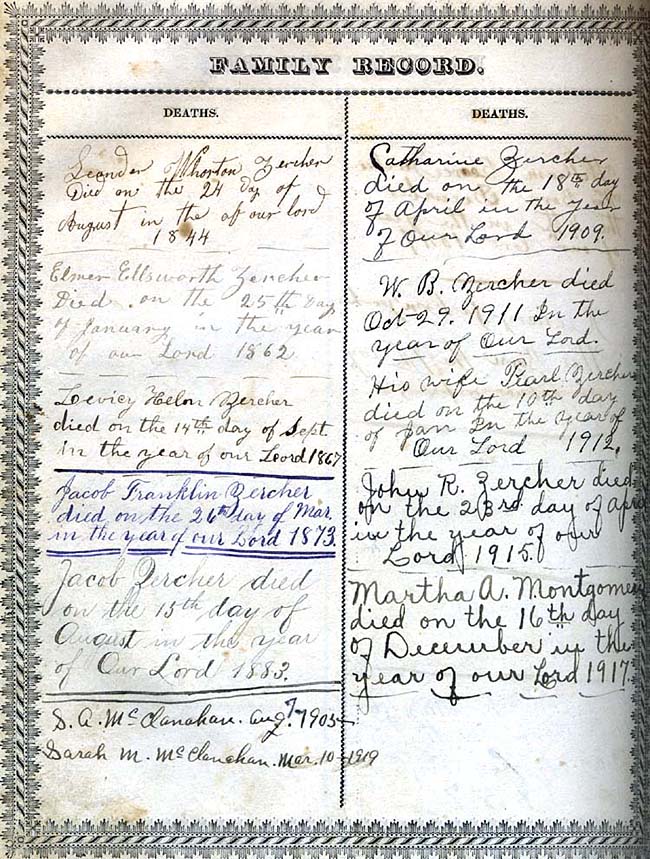 FAMILY RECORD.
DEATHS.
Leander Whorton Zercher
Died on the 24 day of
August in the of our lord
1844
Elmer Ellsworth Zercher
Died on the 25th Day
of January in the year
of our Lord 1862
Levicy Helen Zercher
died on the 14th day of Sept.
in the year of our Leord 1867
Jacob Franklin Zercher
died on the 26th day of Mar.
in the year of our Lord 1873.
Jacob Zercher died
on the 15th day of
August in the year
of Our Lord 1883.
S. A. McClanahan. Aug. 7, 1905
Sarah M. McClanahan. Mar. 10-1919
DEATHS.
Catharine Zercher
died on the 18th day
of April in the year
of Our Lord 1909.
W. B. Zercher died
Oct-29. 1911 In the
year of Our Lord.
His wife Pearl Zercher
died on the 10th day
of Jan In the year of
Our Lord 1912.
John R. Zercher died
on the 23rd day of Apri
in the year of our
Lord 1915.
Martha A. Montgomery
died on the 16th day
of December in the
year of our Lord 1917.